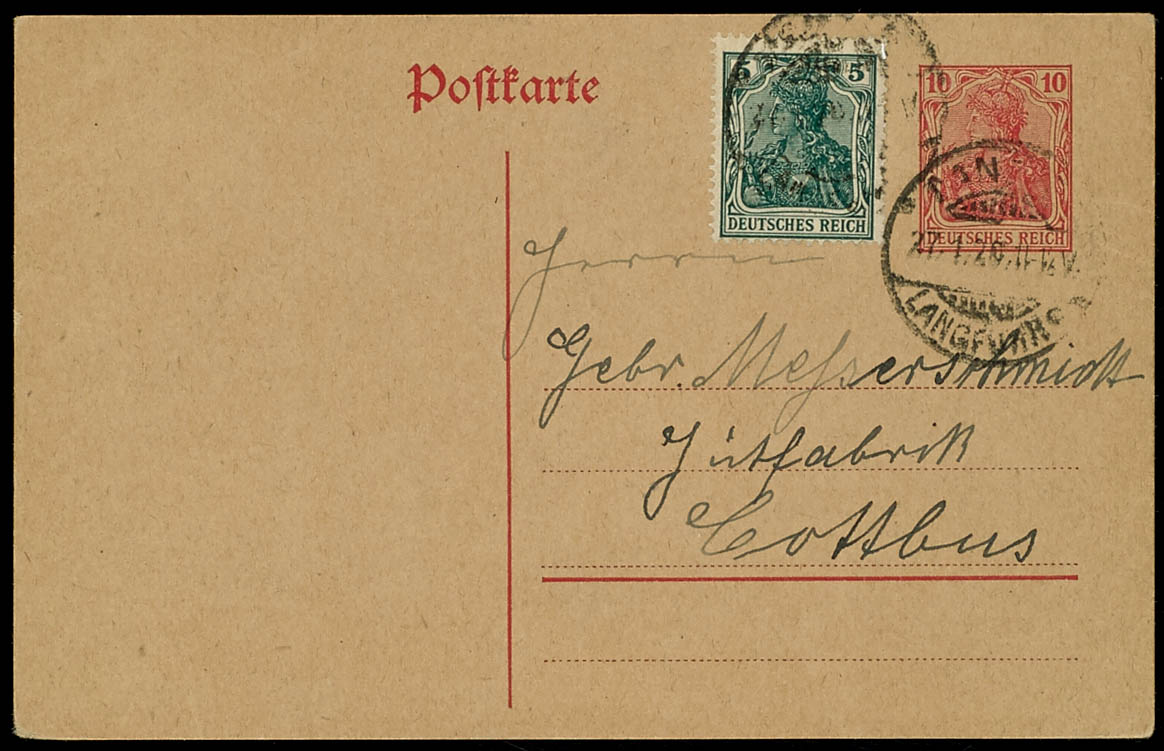 Postkarte
5 5
DEUTSCHES REICH
10 10
DEUTSCHES REICH
27.1.20.11-12V.
LANGFUHR
Herrn
Gebr. Messerschmidt
Hutfabrik
Cottbus